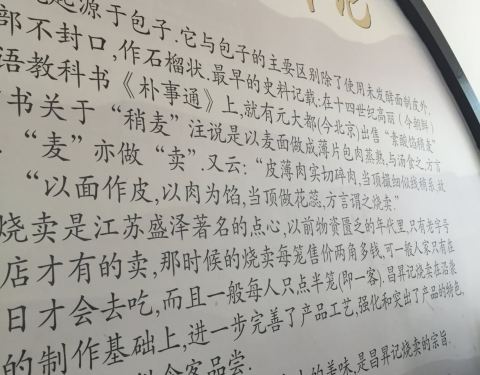 记
起源于包子.它与包子的主要区别除了使用未发酵面制皮外.
部不封口,作石榴状.最早的史料记载:在十四世纪高丽(今朝鲜)
语教科书《朴事通》上,就有元大都(今北京)出售“素酸馅稍麦”
书关于“稍麦”注说是以麦面做成薄片包肉蒸熟,与汤食之,方言
.“麦”亦做“卖”.又云:“皮薄肉实切碎肉,当顶撮细似线稍系,故
“以面作皮,以肉为馅,当顶做花蕊,方言谓之烧卖.”
烧卖是江苏盛泽著名的点心,以前物资匮乏的年代里,只有老字号
店才有的卖,那时候的烧卖每笼售价两角多钱,可一般人家只有在
日才会去吃,而且一般每人只点半笼(即一客).昌昇记烧卖在沿袭
的制作基础上,进一步完善了产品工艺,强化和突出了产品的特色,
客品尝.
的美味,是昌昇记烧卖的宗旨.